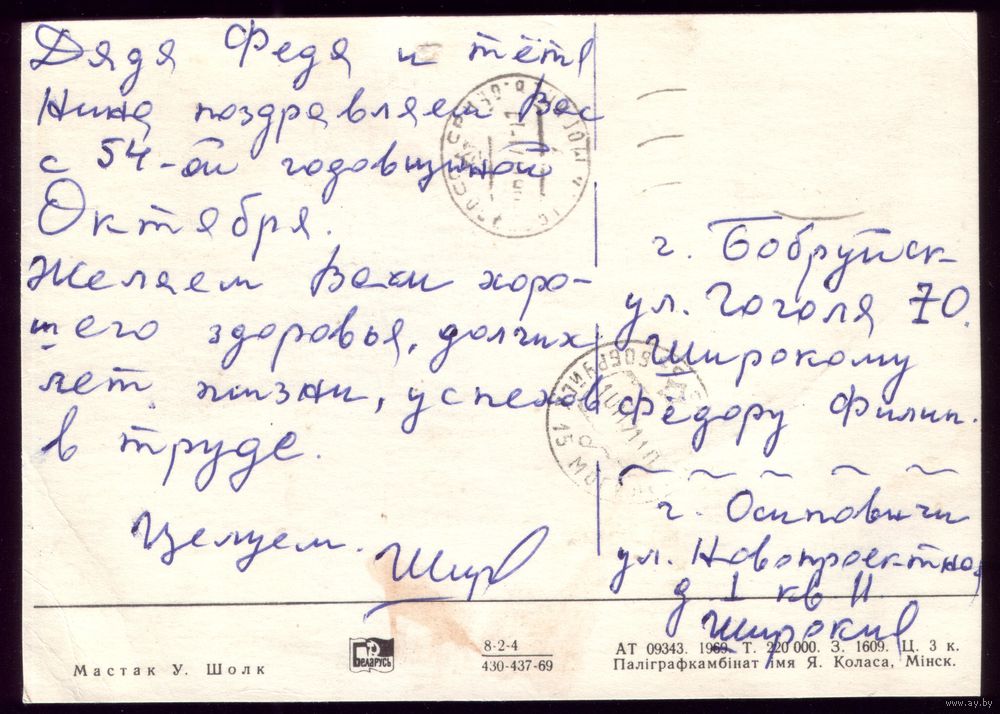 Дядя Федя и тётя
Нина поздравляем Вас
с 54-ой годовщиной
Октября.
Желаем Вам хоро-
шего здоровья, долгих
лет жизни, успехов
в труде.
Целуем.
г. Бобруйск
ул. Гоголя 70.
Широкому
Федору Филип.
г. Осиповичи
ул. Новопроектная
д 1 кв 11
Широкие
Мастак У. Шолк
Беларусь
8-2-4
430-437-69
АТ 09343. 1969. Т. 220 000. З. 1609. Ц. 3 к.
Паліграфкамбінат імя Я. Коласа, Мінск.
www.ay.by